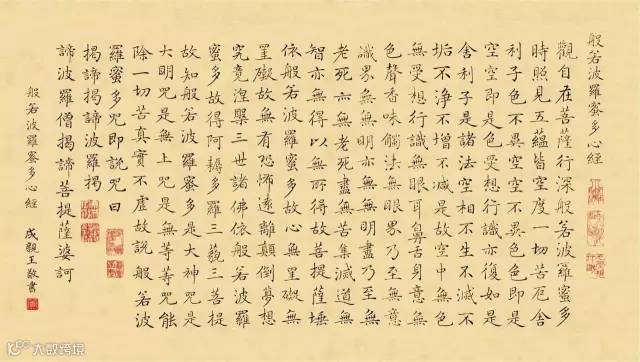 般若波羅蜜多心經
觀自在菩薩行深般若波羅蜜多
時照見五蘊皆空度一切苦厄舍
利子色不異空空不異色色即是
空空即是色受想行識亦復如是
舍利子是諸法空相不生不滅不
垢不淨不增不減是故空中無色
無受想行識無眼耳鼻舌身意無
色聲香味觸法無眼界乃至無意
識界無無明亦無無明盡乃至無
老死亦無老死盡無苦集滅道無
智亦無得以無所得故菩提薩埵
依般若波羅蜜多故心無罣礙無
罣礙故無有恐怖遠離顛倒夢想
究竟涅槃三世諸佛依般若波羅
蜜多故得阿耨多羅三藐三菩提
故知般若波羅蜜多是大神咒是
大明咒是無上咒是無等等咒能
除一切苦真實不虛故說般若波
羅蜜多咒即說咒曰
揭諦揭諦波羅揭
諦波羅僧揭諦菩提薩婆訶
般若波羅蜜多心經
成親王敬書
大数跨境